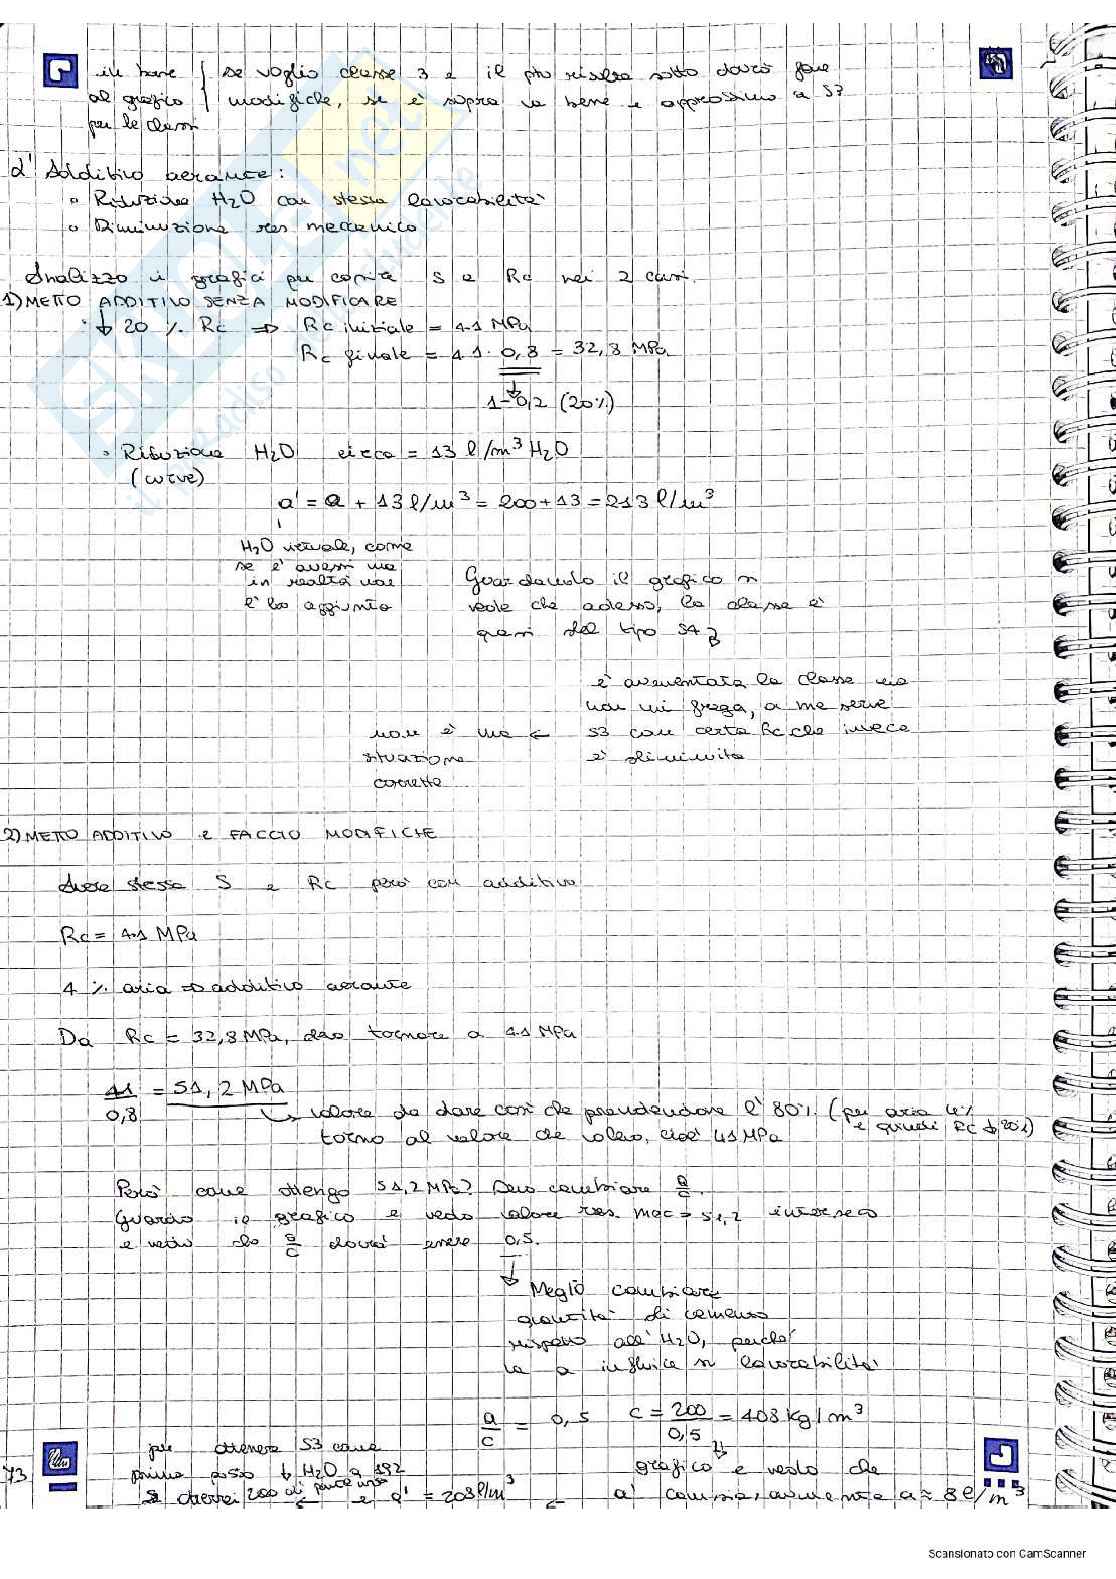 in base { se voglio classe 3 e il pto risulta sotto dovrò fare
al grafico { modifiche, se è sopra va bene e approssimo a S3
per le classi
d' Additivo aerante:
Riduzione H2O con stessa lavorabilità
Diminuzione res meccanica
Analizzo i grafici per capire S e Rc nei 2 casi.
1) METTO ADDITIVO SENZA MODIFICARE
↓ 20 % Rc ⇒ Rc iniziale = 41 MPa
Rc finale = 41 · 0,8 = 32,8 MPa
1-0,2 (20%)
Riduzione H2O circa = 13 l/m³ H2O
(curve)
a' = a + 13 l/m³ = 200+13 = 213 l/m³
H2O virtuale, come
se è avessi ma
in realtà non
l'ho aggiunto
Guardando il grafico si
vede che adesso, la classe è
quasi del tipo S4
è aumentata la classe ma
non mi frega, a me serve
non è una ← S3 con certa Rc che invece
situazione è diminuita
corretta
2) METTO ADDITIVO e FACCIO MODIFICHE
Avere stessa S e Rc però con additivo
Rc = 41 MPa
4 % aria ⇒ additivo aerante
Da Rc = 32,8 MPa, devo tornare a 41 MPa
41/0,8 = 51,2 MPa
valore da dare così che prendendone l'80% (per aria 4%
e quindi Rc ↓ 20%)
torno al valore che volevo, cioè 41 MPa
Però come ottengo 51,2 MPa? Devo cambiare a/c.
Guardo il grafico e vedo valore res. mec = 51,2 interseco
e vedo che a/c dovrà essere 0,5.
↓ Meglio cambiare
quantità di cemento
rispetto all'H2O, perché
la a influisce su lavorabilità
a/c = 0,5 c = 200/0,5 = 408 kg/m³
per ottenere S3 come
grafico e vedo che
prima posso ↓ H2O a 192
73
e a' = 208 l/m³ ← a' cambia, aumenta a ≈ 8 l/m³
Scansionato con CamScanner